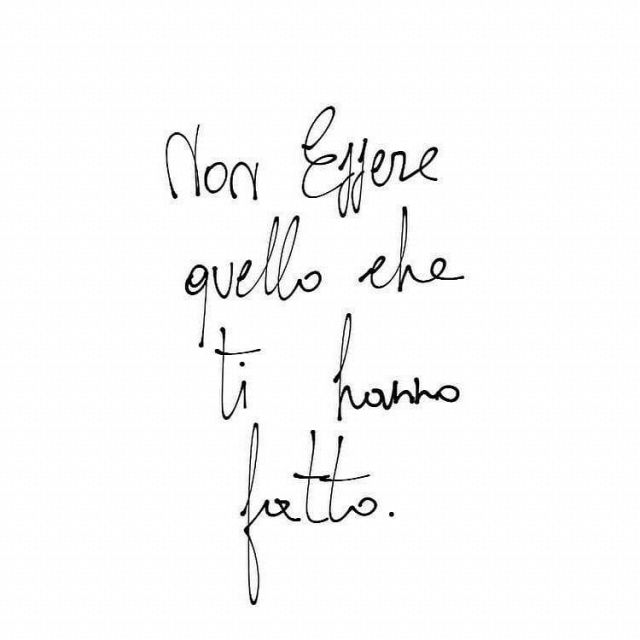 Non Essere
quello che
ti hanno
fatto.